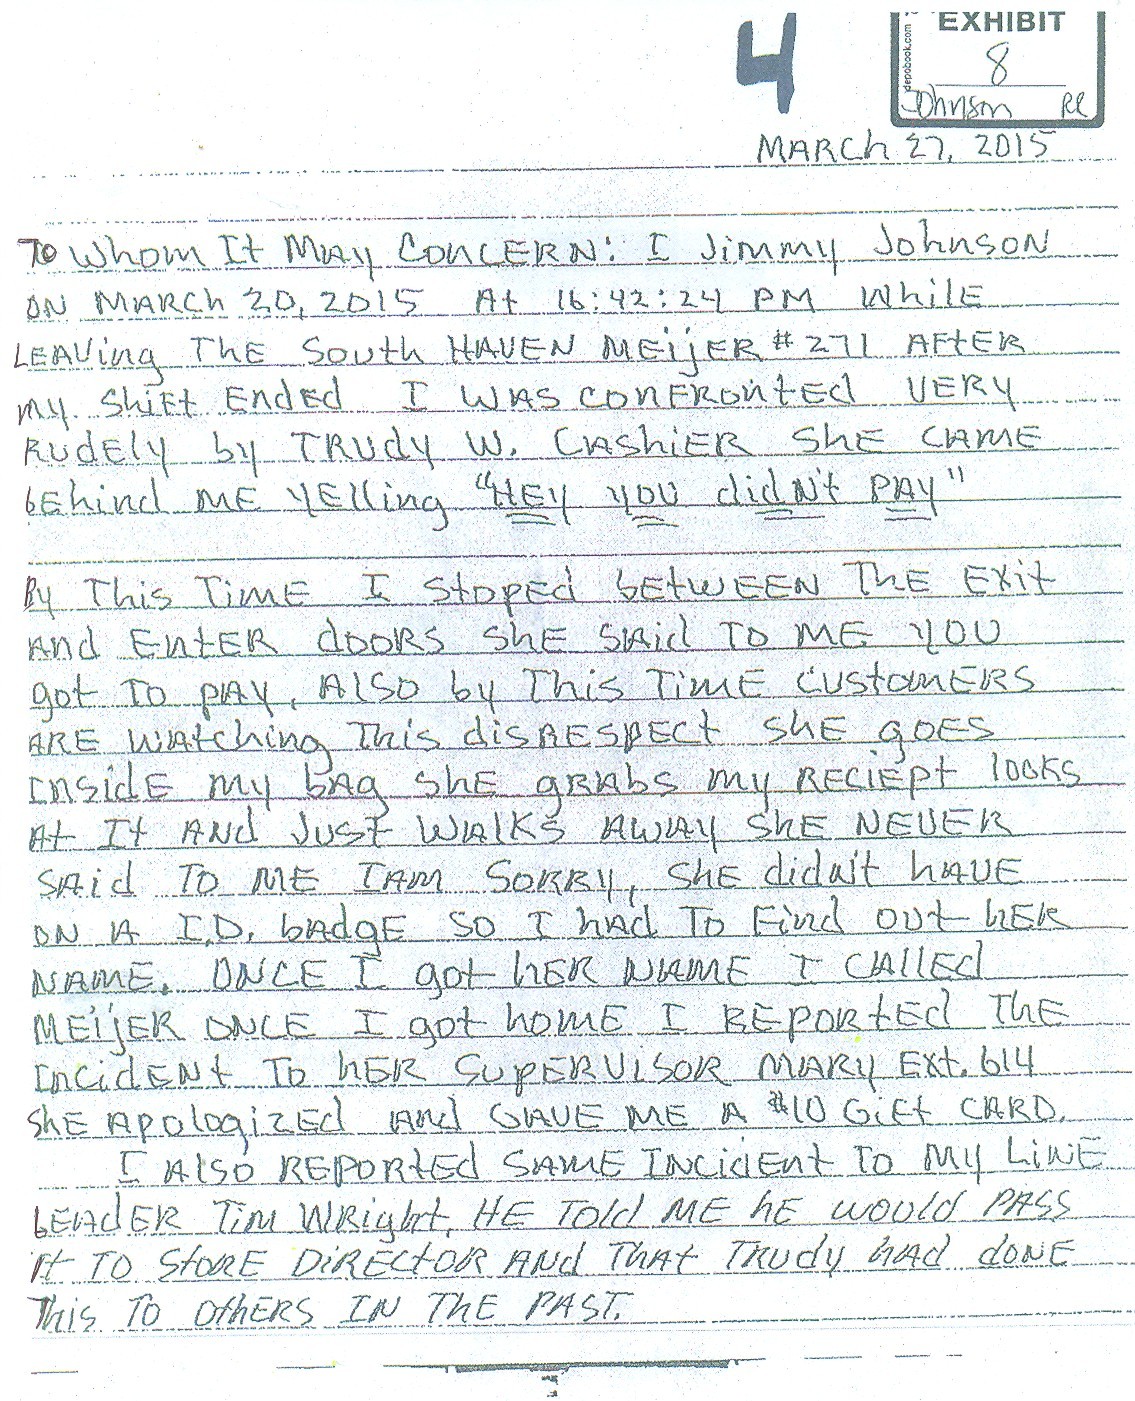 4
EXHIBIT
depobook.com
8
Johnson RR
MARCH 27, 2015
To Whom It May Concern: I Jimmy Johnson
on March 20, 2015 At 16:42:24 PM While
Leaving The South Haven Meijer #271 After
my shift Ended I was confronted very
Rudely by Trudy W. Cashier she came
behind me yelling "HEY YOU didn't PAY"
By This Time I stoped between The Exit
and Enter doors she said To me you
got To pay, Also by This Time customers
are watching This disrespect she goes
Inside my bag she grabs my Reciept looks
At It And Just Walks Away she never
said To me I am sorry, she didn't have
on A I.D. badge so I had To Find out her
name. Once I got her name I called
Meijer once I got home I Reported The
Incident To her Supervisor Mary Ext. 614
she Apologized and Gave me A $10 Gift Card.
I Also Reported same Incident To my Line
Leader Tim Wright, He Told me he would pass
It To Store Director And That Trudy had done
This To others In The Past.